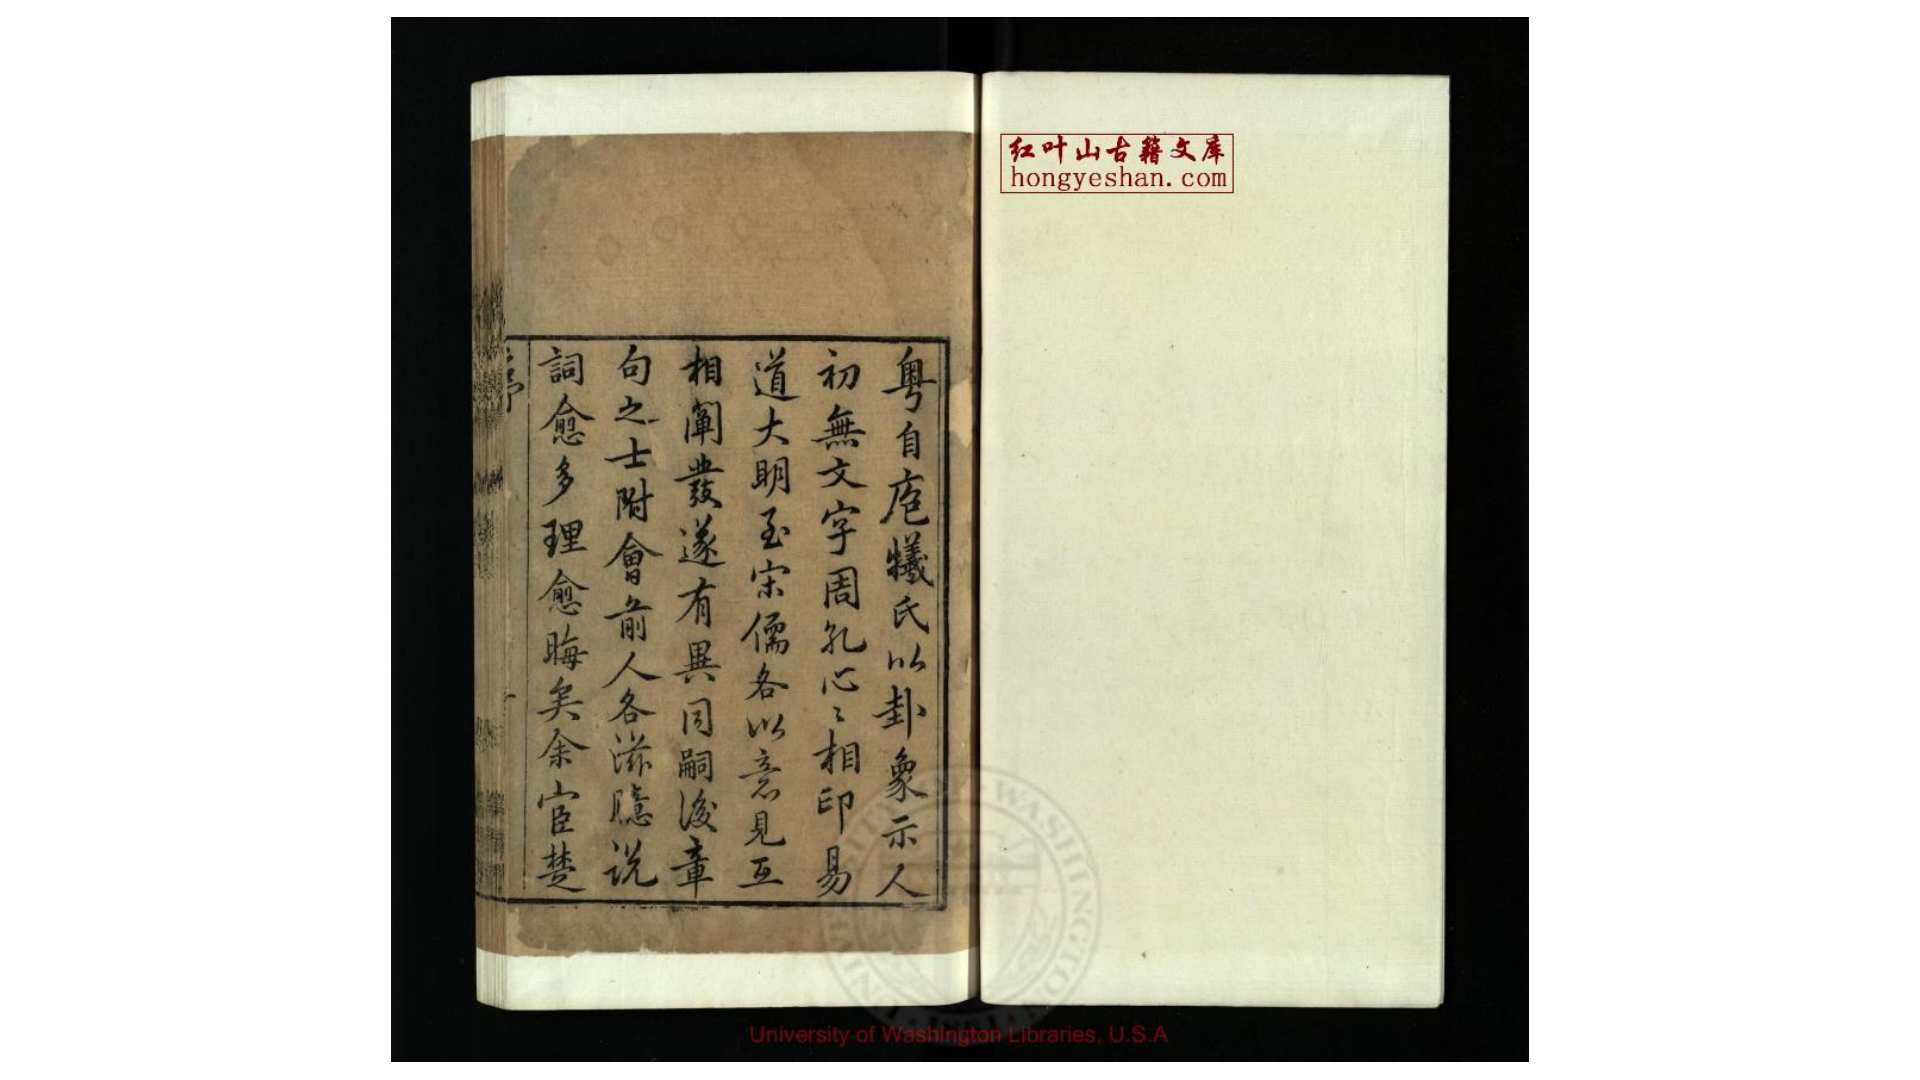 粵自庖犧氏以卦象示人
初無文字周孔心〻相印易
道大明至宋儒各以意見互
相闡發遂有異同嗣後章
句之士附會前人各滋臆説
詞愈多理愈晦矣余宦楚
序
红叶山古籍文库
hongyeshan.com
University of Washington Libraries, U.S.A